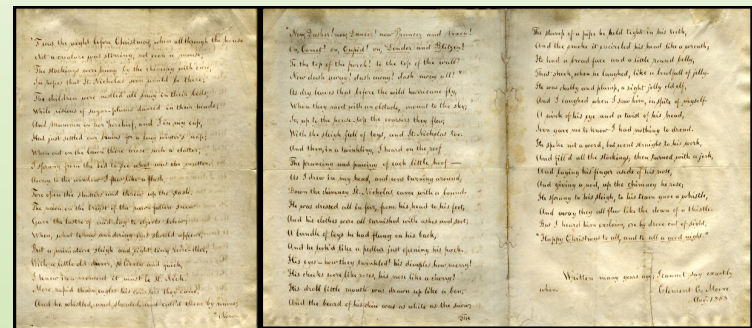 'Twas the night before Christmas, when all through the house
Not a creature was stirring, not even a mouse;
The stockings were hung by the chimney with care,
In hopes that St. Nicholas soon would be there;
The children were nestled all snug in their beds,
While visions of sugar-plums danced in their heads;
And Mamma in her 'kerchief, and I in my cap,
Had just settled our brains for a long winter's nap;
When out on the lawn there arose such a clatter,
I sprang from the bed to see what was the matter.
Away to the window I flew like a flash,
Tore open the shutters and threw up the sash.
The moon on the breast of the new-fallen snow
Gave the lustre of mid-day to objects below,
When, what to my wondering eyes should appear,
But a miniature sleigh and eight tiny reindeer,
With a little old driver, so lively and quick,
I knew in a moment it must be St. Nick.
More rapid than eagles his coursers they came,
And he whistled, and shouted, and call'd them by name;
"Now
"Now, Dasher! now, Dancer! now Prancer and Vixen!
On, Comet! on, Cupid! on, Donder and Blitzen!
To the top of the porch! to the top of the wall!
Now dash away! dash away! dash away all!"
As dry leaves that before the wild hurricane fly,
When they meet with an obstacle, mount to the sky;
So up to the house-top the coursers they flew,
With the sleigh full of toys, and St. Nicholas too.
And then, in a twinkling, I heard on the roof
The prancing and pawing of each little hoof—
As I drew in my head, and was turning around,
Down the chimney St. Nicholas came with a bound.
He was dressed all in fur, from his head to his foot,
And his clothes were all tarnished with ashes and soot;
A bundle of toys he had flung on his back,
And he look'd like a pedlar just opening his pack.
His eyes—how they twinkled! his dimples how merry!
His cheeks were like roses, his nose like a cherry!
His droll little mouth was drawn up like a bow,
And the beard of his chin was as white as the snow;
The
The stump of a pipe he held tight in his teeth,
And the smoke it encircled his head like a wreath;
He had a broad face and a little round belly,
That shook, when he laughed, like a bowlfull of jelly.
He was chubby and plump, a right jolly old elf,
And I laughed when I saw him, in spite of myself.
A wink of his eye and a twist of his head,
Soon gave me to know I had nothing to dread.
He spoke not a word, but went straight to his work,
And fill'd all the stockings; then turned with a jerk,
And laying his finger aside of his nose,
And giving a nod, up the chimney he rose;
He sprang to his sleigh, to his team gave a whistle,
And away they all flew like the down of a thistle.
But I heard him exclaim, ere he drove out of sight,
"Happy Christmas to all, and to all a good night."
Written many years ago; I cannot say exactly
when
Clement C. Moore